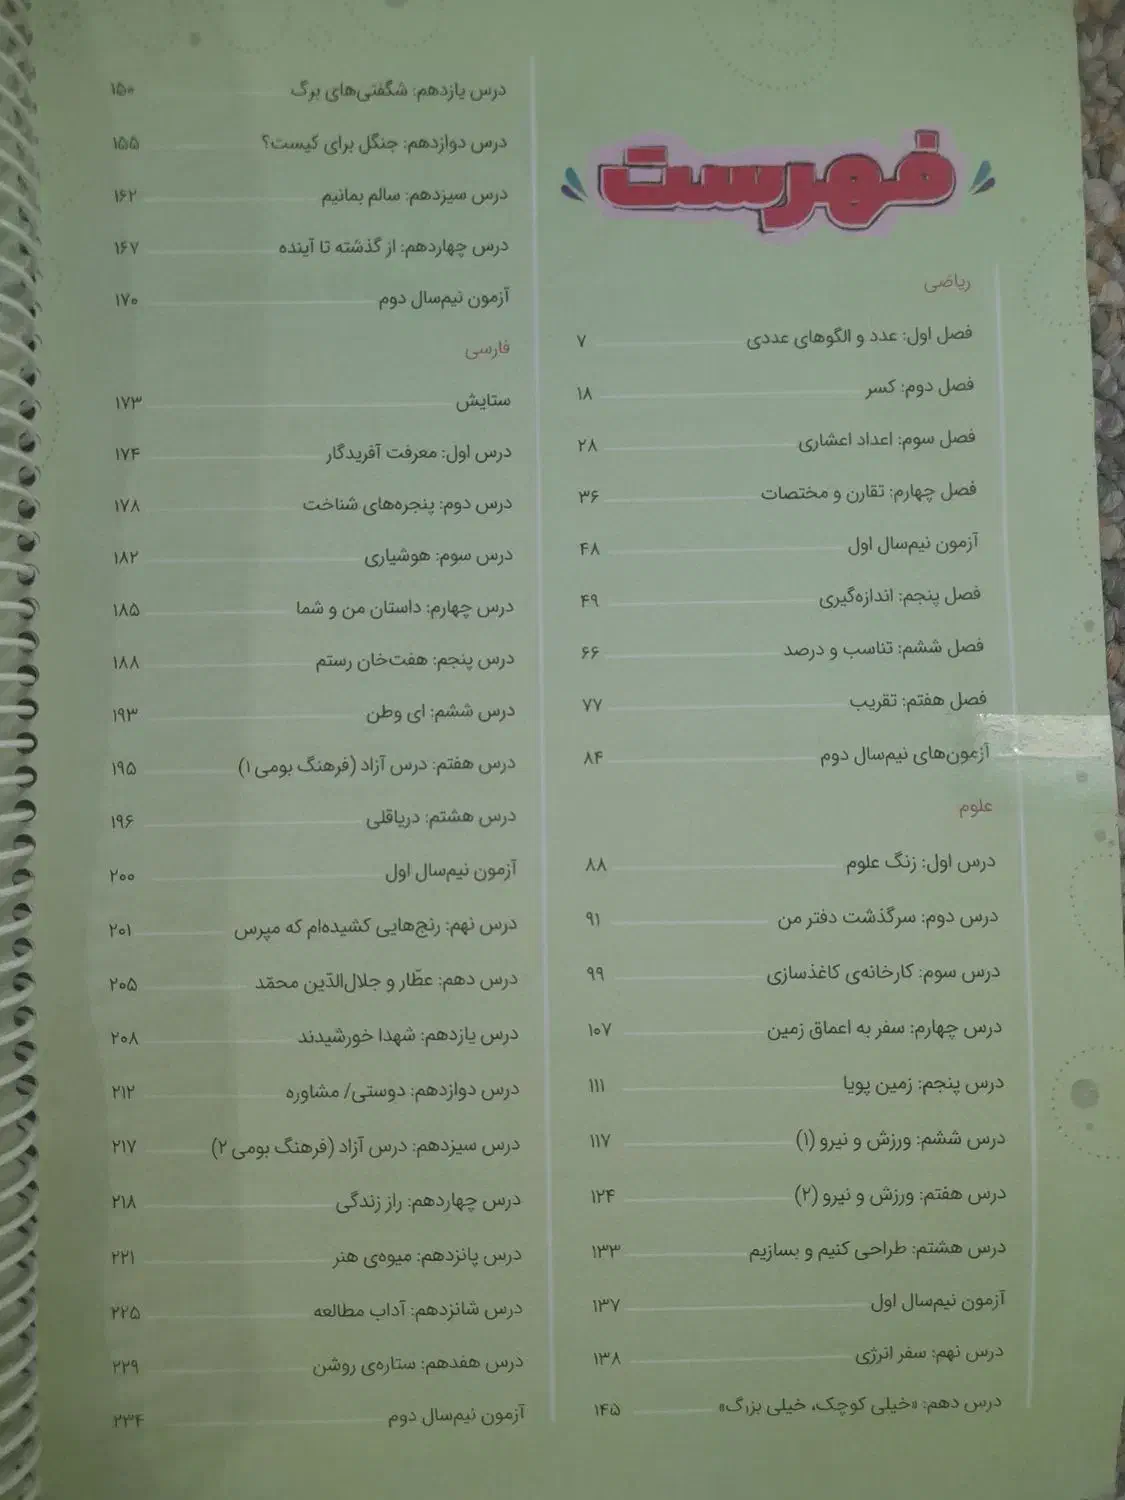 فهرست
ریاضی
فصل اول: عدد و الگوهای عددی ۷
فصل دوم: کسر ۱۸
فصل سوم: اعداد اعشاری ۲۸
فصل چهارم: تقارن و مختصات ۳۶
آزمون نیم‌سال اول ۴۸
فصل پنجم: اندازه‌گیری ۴۹
فصل ششم: تناسب و درصد ۶۶
فصل هفتم: تقریب ۷۷
آزمون‌های نیم‌سال دوم ۸۴
علوم
درس اول: زنگ علوم ۸۸
درس دوم: سرگذشت دفتر من ۹۱
درس سوم: کارخانه‌ی کاغذسازی ۹۹
درس چهارم: سفر به اعماق زمین ۱۰۷
درس پنجم: زمین پویا ۱۱۱
درس ششم: ورزش و نیرو (۱) ۱۱۷
درس هفتم: ورزش و نیرو (۲) ۱۲۴
درس هشتم: طراحی کنیم و بسازیم ۱۳۳
آزمون نیم‌سال اول ۱۳۷
درس نهم: سفر انرژی ۱۳۸
درس دهم: «خیلی کوچک، خیلی بزرگ» ۱۴۵
درس یازدهم: شگفتی‌های برگ ۱۵۰
درس دوازدهم: جنگل برای کیست؟ ۱۵۵
درس سیزدهم: سالم بمانیم ۱۶۲
درس چهاردهم: از گذشته تا آینده ۱۶۷
آزمون نیم‌سال دوم ۱۷۰
فارسی
ستایش ۱۷۳
درس اول: معرفت آفریدگار ۱۷۴
درس دوم: پنجره‌های شناخت ۱۷۸
درس سوم: هوشیاری ۱۸۲
درس چهارم: داستان من و شما ۱۸۵
درس پنجم: هفت‌خان رستم ۱۸۸
درس ششم: ای وطن ۱۹۳
درس هفتم: درس آزاد (فرهنگ بومی ۱) ۱۹۵
درس هشتم: دریاقلی ۱۹۶
آزمون نیم‌سال اول ۲۰۰
درس نهم: رنج‌هایی کشیده‌ام که مپرس ۲۰۱
درس دهم: عطّار و جلال‌الدّین محمّد ۲۰۵
درس یازدهم: شهدا خورشیدند ۲۰۸
درس دوازدهم: دوستی/ مشاوره ۲۱۲
درس سیزدهم: درس آزاد (فرهنگ بومی ۲) ۲۱۷
درس چهاردهم: راز زندگی ۲۱۸
درس پانزدهم: میوه‌ی هنر ۲۲۱
درس شانزدهم: آداب مطالعه ۲۲۵
درس هفدهم: ستاره‌ی روشن ۲۲۹
آزمون نیم‌سال دوم ۲۳۴